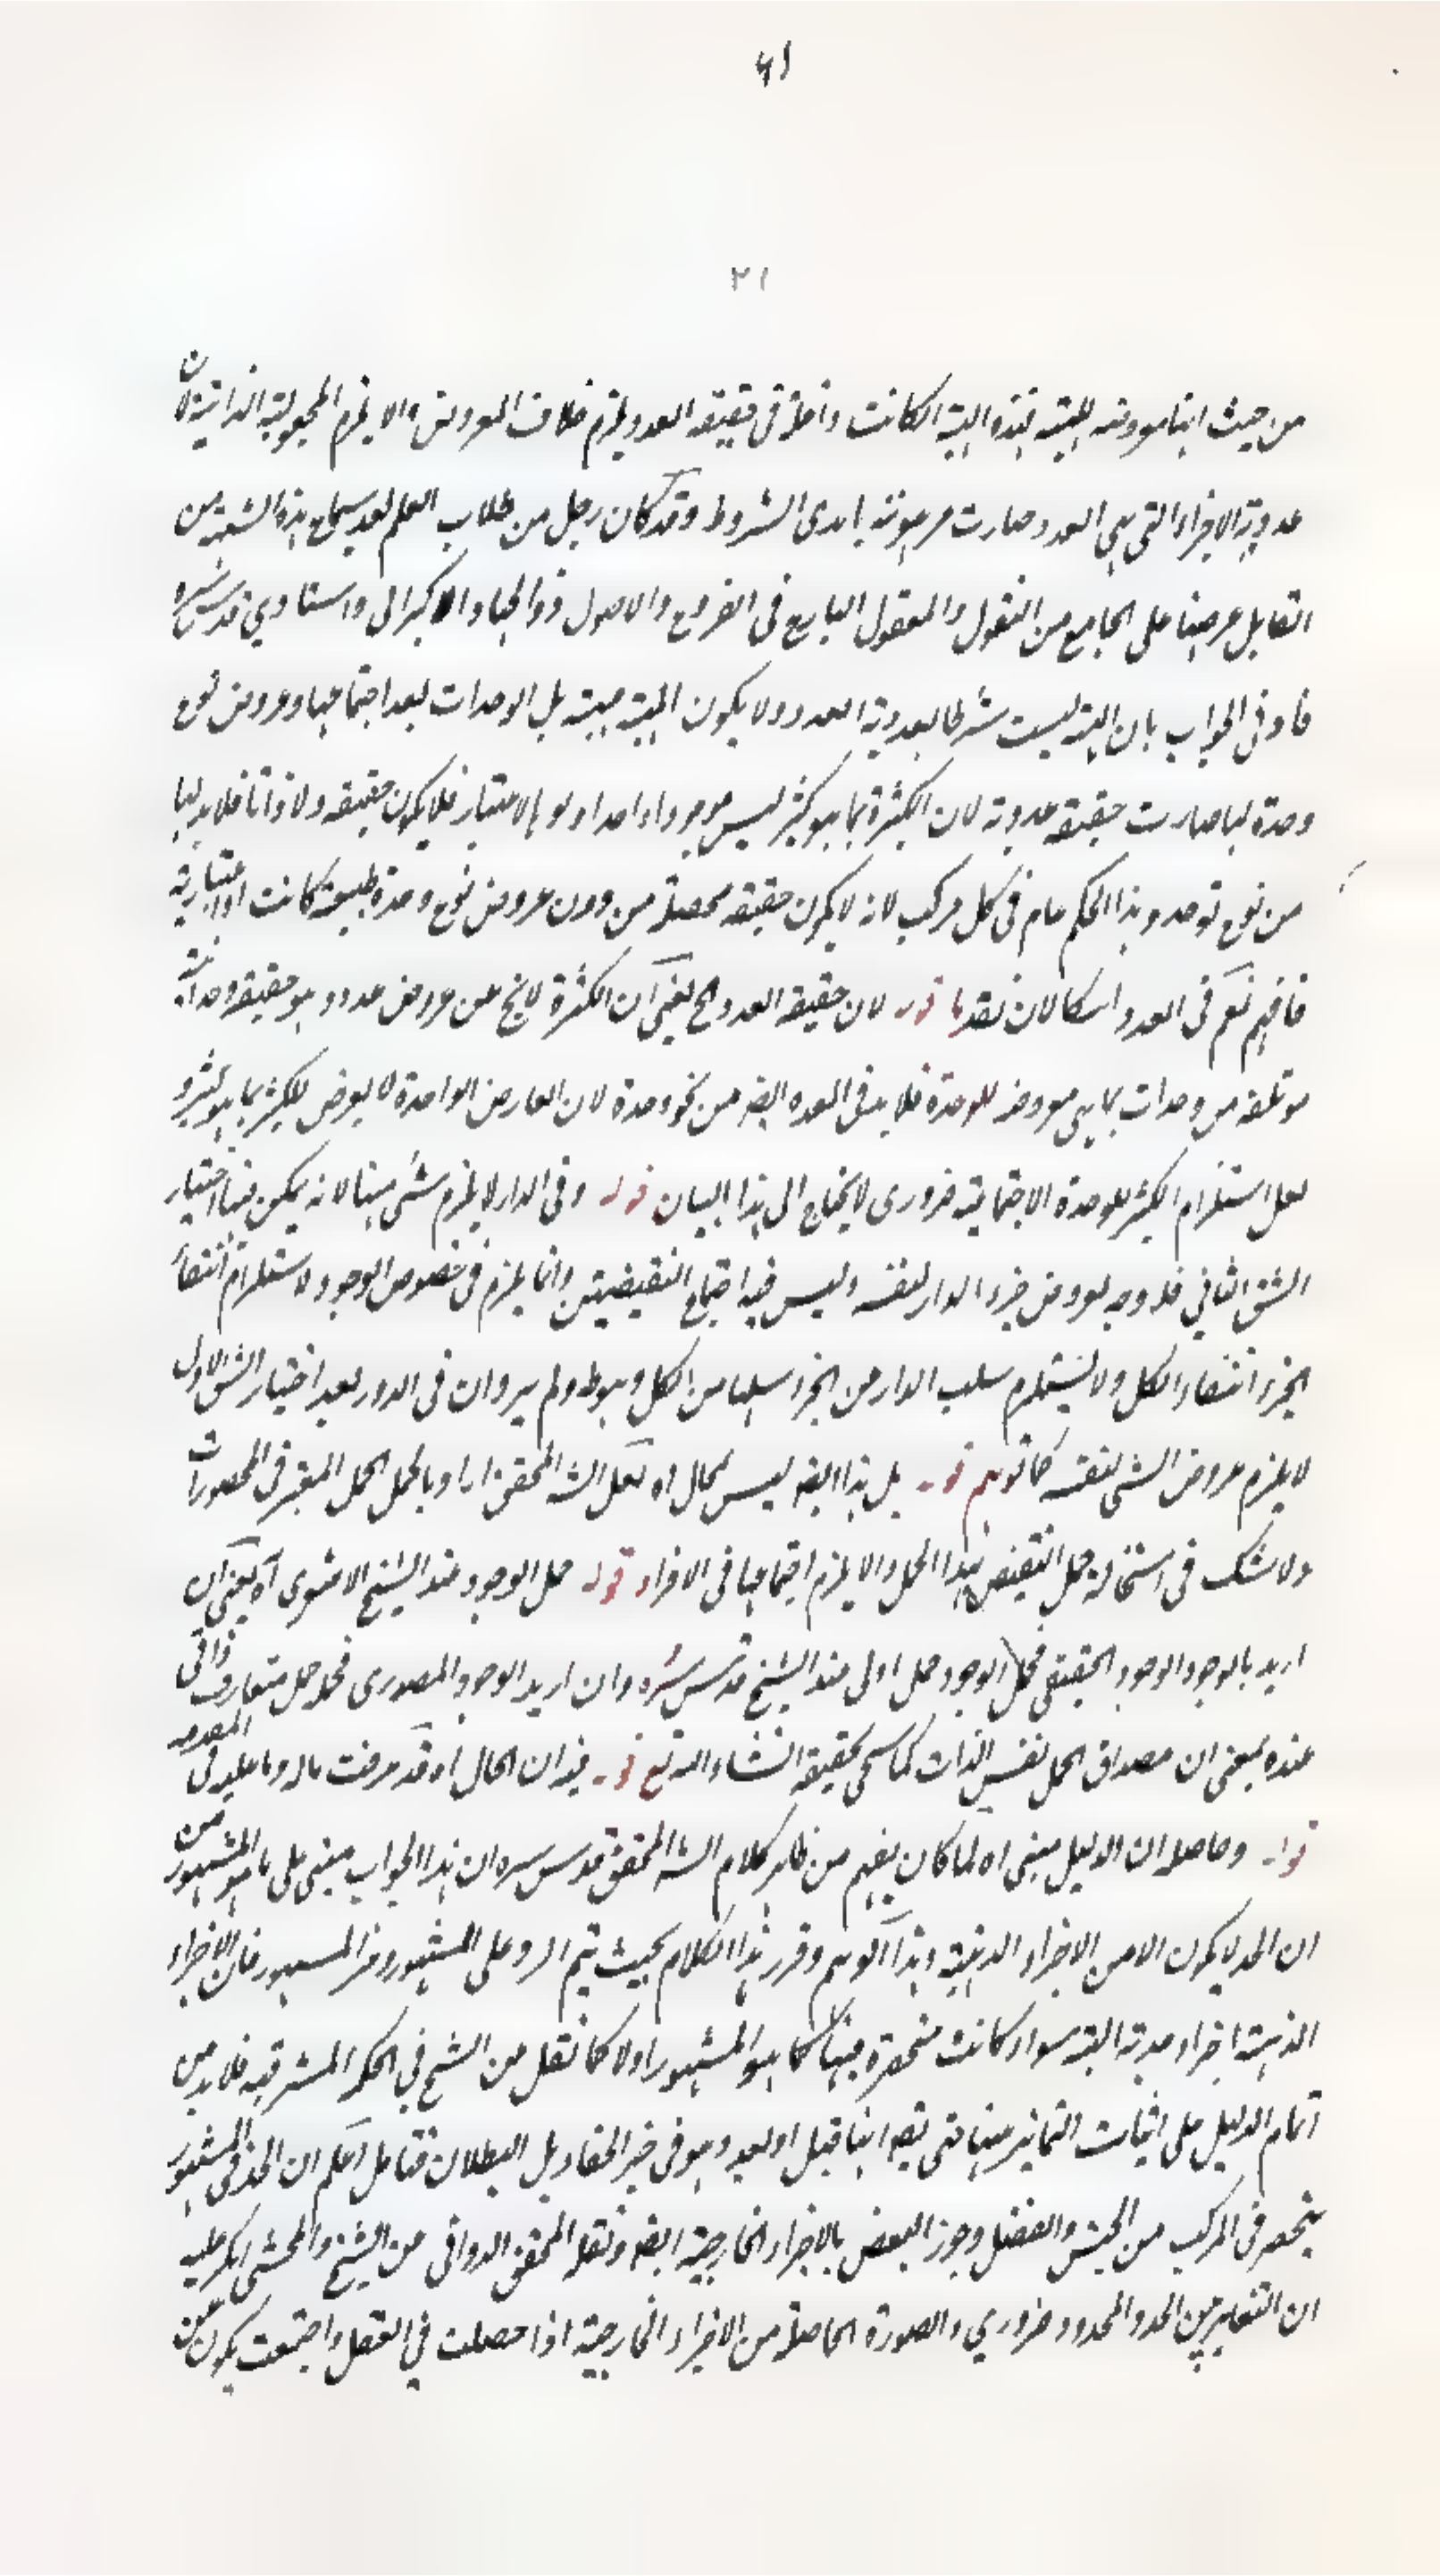 ٦١
٢١
من حيث انها معروضة للهيئة فهذه الهيئة ان كانت داخلة في حقيقة العدد يلزم خلاف المفروض والا يلزم المجعولية الذاتية لان
عددية الاجزاء التي هي العدد صارت مرهونة باحدى الشروط وقد كان رجل من طلاب العلم بعد سماع هذه الشبهة من
القابل عرضها على الجامع من المنقول والمعقول البارع في الفروع والاصول ذو الجاه الاكبر ابي واستاذي قدس سره
فافاد في الجواب بان الهيئة ليست شرطا لعددية العدد ولا يكون الهيئة هيئة بل الوحدات بعد اجتماعها وعروض نوع
وحدة لها صارت حقيقة عددية لان الكثرة بما هو كثير ليس موجودا واحدا ولو بالاعتبار فلا يكون حقيقة ولا ذاتا فلا بد لها
من نوع توحد وهذا الحكم عام في كل مركب لانه لا يكون حقيقة محصلة من دون عروض نوع وحدة طبيعية كانت او اعتبارية
فافهم نعم في العدد اشكالان قوله لان حقيقة العدد ح يعني ان الكثرة لا يخ عن عروض عدد وهو حقيقة وحدانية
مؤتلفة من وحدات بما هي معروضة للوحدة فلا بد في المعدود ايضا من نحو وحدة لان العارض الواحدة لا يعرض للكثير بما هو كثير و
لعل استلزام الكثير للوحدة الاجتماعية ضروري لا يحتاج الى هذا البيان قوله وفي الدار لا يلزم شيء منها لانه يمكن فيها اختيار
الشق الثاني فلا وجه لعروض جزء الدار لنفسه وليس فيه اجتماع النقيضين وانما يلزم في خصوص الوجود لاستلزام انتفاء
الجزء انتفاء الكل ولا يستلزم سلب الدار عن الجزء سلبها من الكل وهو ظ ولم يرد ان في الدور بعد اختيار الشق الاول
لا يلزم عروض الشيء لنفسه كما توهم قوله بل هذا ايضا ليس بمحال اه لعل الشه المحقق اراد بالحمل الحمل المعتبر في المحصورات
ولا شك في استحالة حمل النقيض بهذا الحمل والا يلزم اجتماعهما في الافراد قوله حمل الوجود عند الشيخ الاشعري اه يعني ان
اريد بالوجود الوجود الحقيقي فحمل الوجود حمل اولى عند الشيخ قدس سره وان اريد الوجود المصدري فحمله حمل متعارف ذاتي
عنده بمعنى ان مصداق الحمل نفس الذات كما سيجي تحقيقه انشاء الله تع قوله فيه ان الحال اه قد عرفت ماله وما عليه في المقدمة
قوله وحاصله ان الدليل مبني اه لما كان يفهم من ظاهر كلام الشه المحقق قدس سره ان هذا الجواب مبني على ما هو المشهور من
ان الحد لا يكون الا من الاجزاء الذهنية وهذا توهم وقرر هذا الكلام بحيث يتم الرد على المشهور وغير المشهور فان الاجزاء
الذهنية اجزاء حدية البتة سواء كانت منحصرة فيها كما هو المشهور او لا كما نقل من الشيخ في الحكمة المشرقية فلا بد من
اتمام الدليل على اثبات التمايز بينها حتى يقه انها قبل او بعد وهو في حيز الخفاء بل البطلان فتامل اعلم ان الحد في المشهور
ينحصر في المركب من الجنس والفصل وجوز البعض بالاجزاء الخارجية ايضا ونقله المحقق الدواني عن الشيخ والمحشي انكر عليه
ان التغاير بين الحد والمحدود ضروري والصورة الحاصلة من الاجزاء الخارجية اذا حصلت في العقل واجتمعت يكون عين